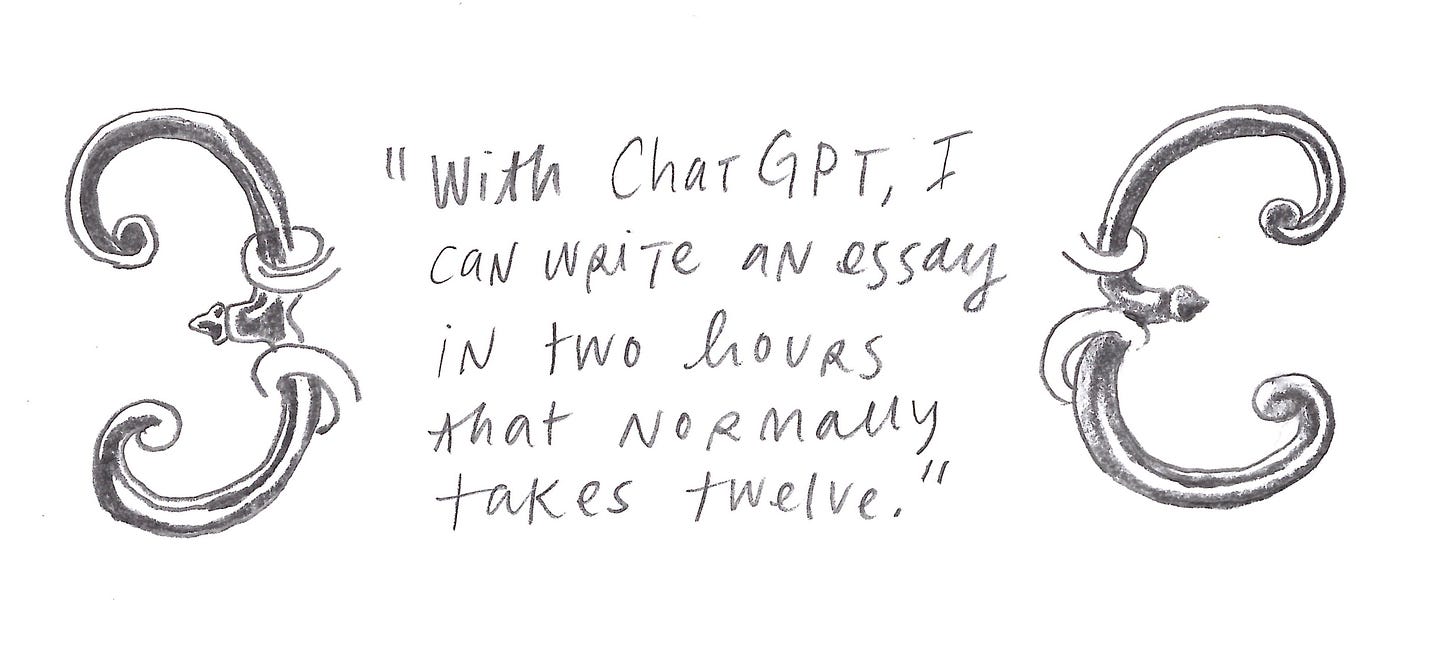 "With ChatGPT, I
can write an essay
in two hours
that normally
takes twelve."